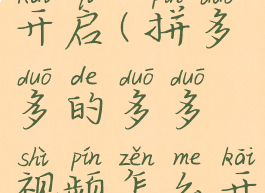 开启(拼多
duō de duō duō
多的多多
shì pín zěn me kāi
视频怎么开